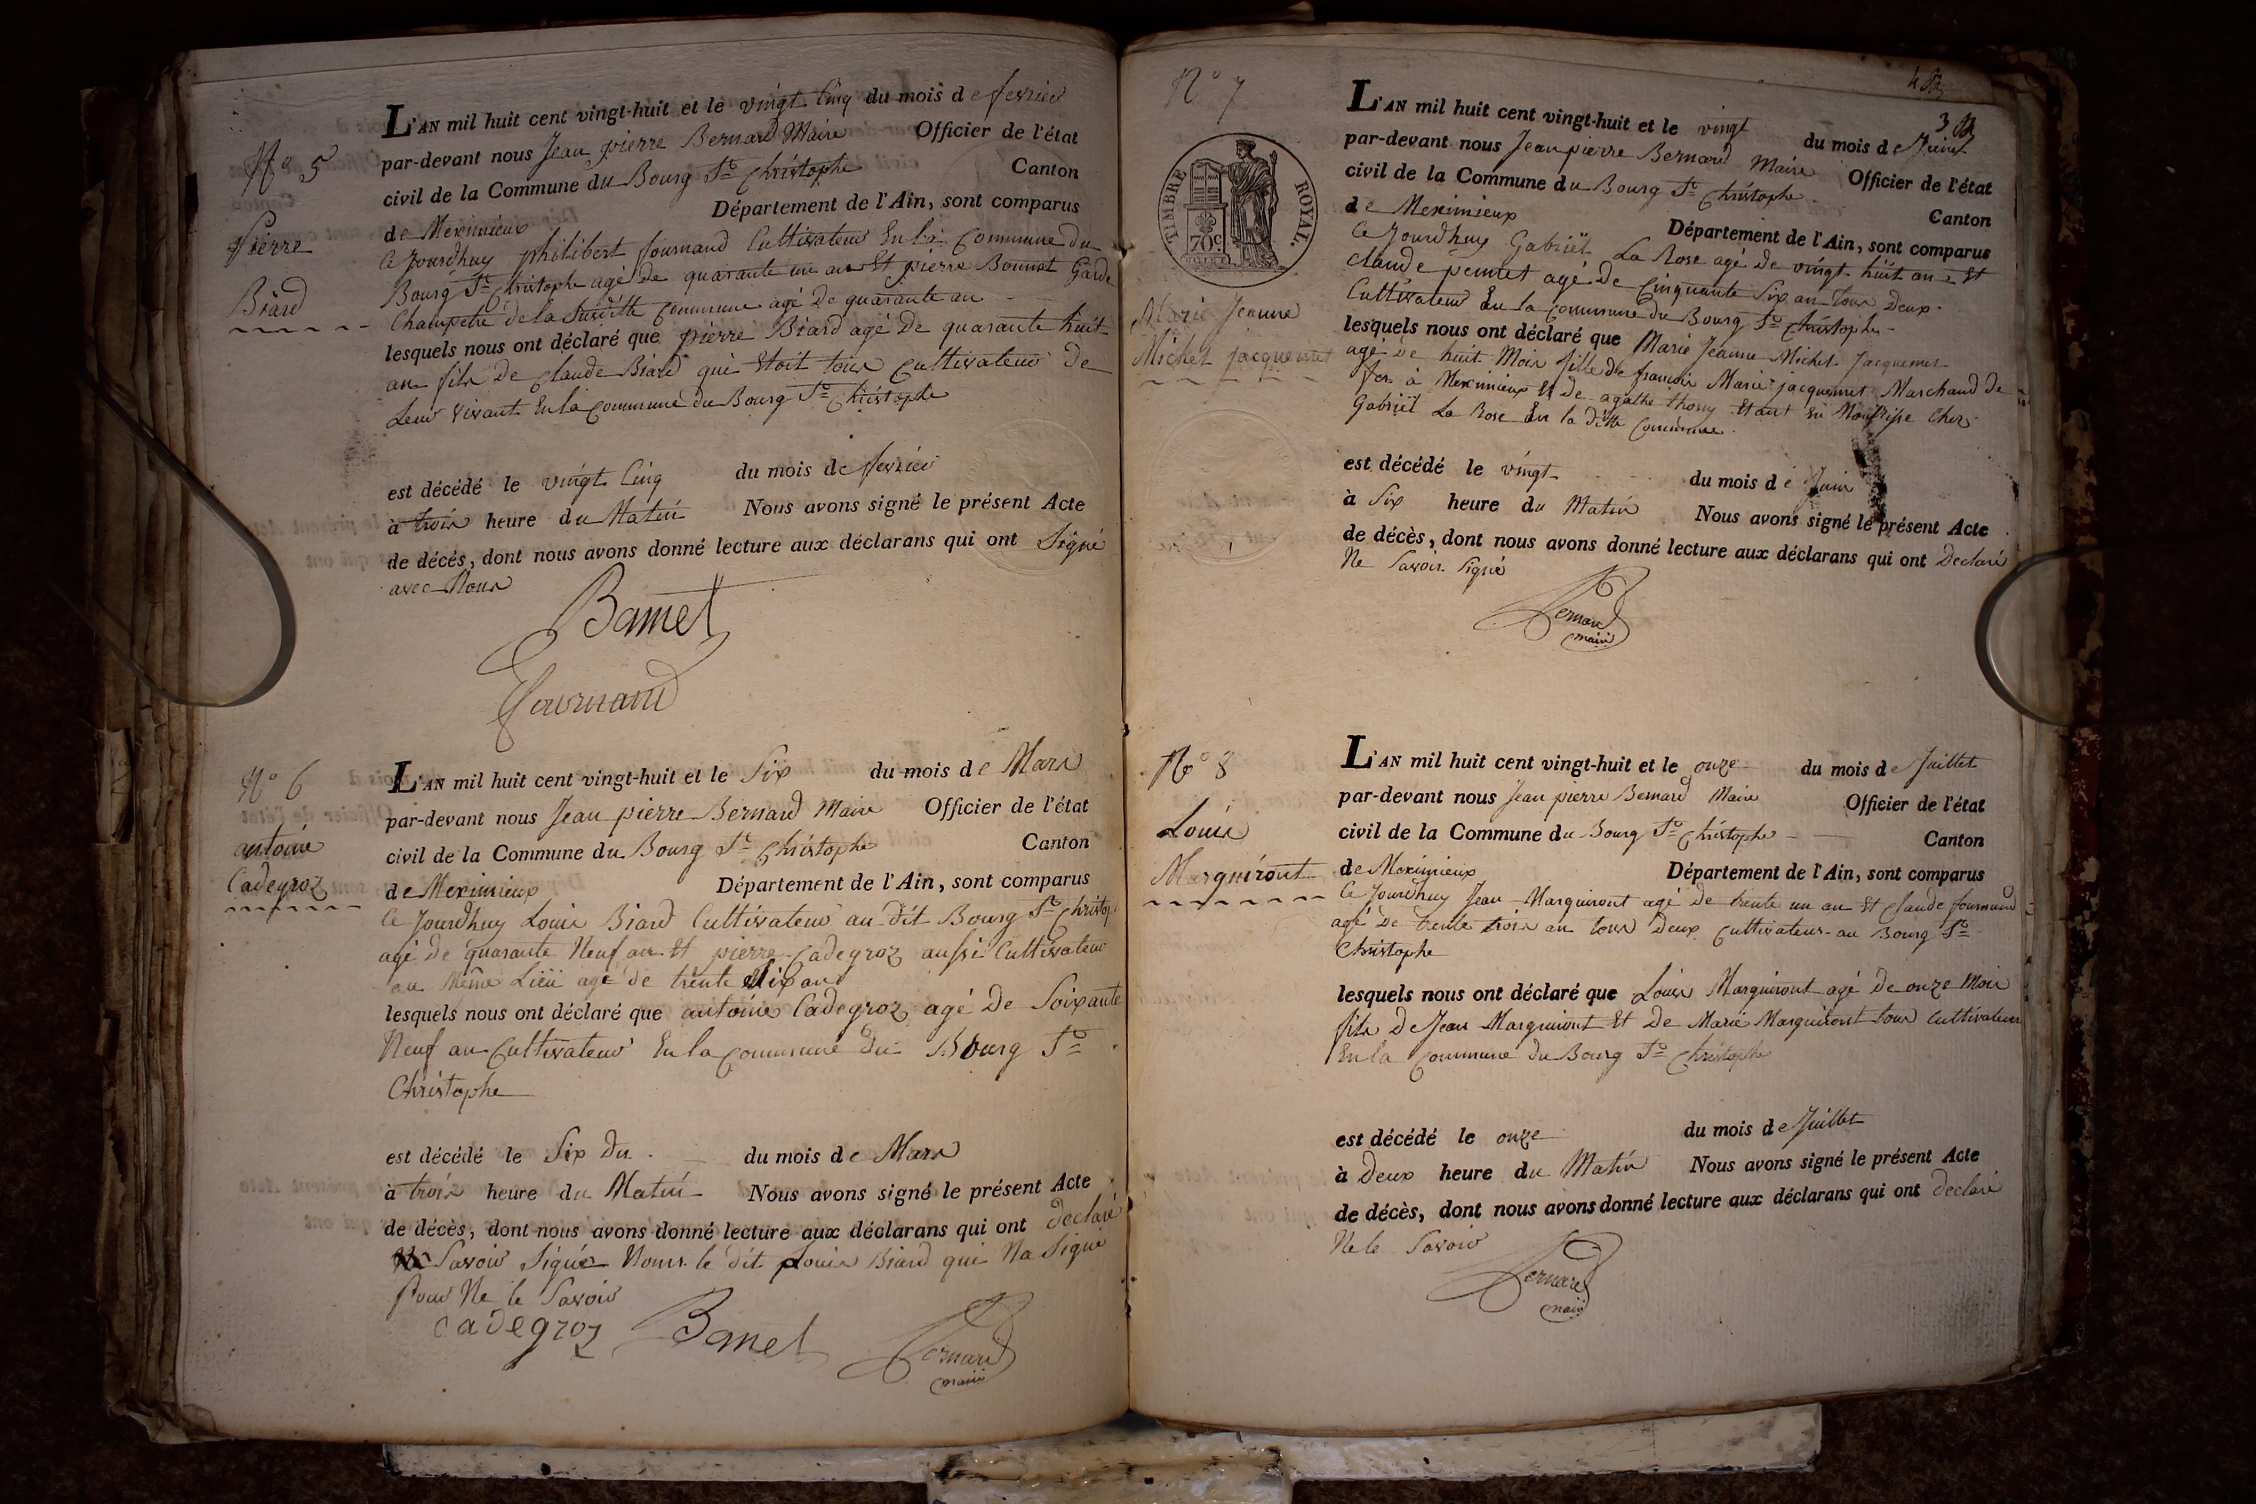 N° 5
Pierre
Biard
L'AN mil huit cent vingt-huit et le vingt Cinq du mois de fevrier
par-devant nous Jean pierre Bernard Maire Officier de l'état
civil de la Commune du Bourg St Christophe Canton
de Meximieux Département de l'Ain, sont comparus
Ce Jourdhuy philibert fournand Cultivateur En la Commune du
Bourg St Christophe agé de quarante un an Et pierre Bonnet Garde
Champetre de la Susditte Commune agé de quarante an
lesquels nous ont déclaré que pierre Biard agé De quarante huit
an fils De Claude Biard qui Etoit tous Cultivateur De
Leur vivant En la Commune du Bourg St Christophe
est décédé le vingt Cinq du mois de fevrier
à trois heure du Matin Nous avons signé le présent Acte
de décès, dont nous avons donné lecture aux déclarans qui ont Signé
avec Nous
Fournand
N° 6
antoine
Cadegroz
L'AN mil huit cent vingt-huit et le Six du mois de Mars
par-devant nous Jean pierre Bernard Maire Officier de l'état
civil de la Commune du Bourg St Christophe Canton
de Meximieux Département de l'Ain, sont comparus
Ce Jourdhuy Louis Biard Cultivateur au dit Bourg St Christop
agé de quarante Neuf an Et pierre Cadegroz aussi Cultivateur
au Même Lieu agé de trente Six ans
lesquels nous ont déclaré que antoine Cadegroz agé De Soixante
Neuf an Cultivateur En la Commune Du Bourg St
Christophe
est décédé le Six Du du mois de Mars
à trois heure du Matin Nous avons signé le présent Acte
de décès, dont nous avons donné lecture aux déclarans qui ont declaré
Savoir Signé le dit Louis Biard qui Na Signé
Pour Ne le Savoir
cadegroz
Bernard
maire
3
N° 7
TIMBRE ROYAL
70c
Marie Jeanne
Michel Jacquemet
L'AN mil huit cent vingt-huit et le vingt du mois de Juin
par-devant nous Jean pierre Bernard Maire Officier de l'état
civil de la Commune du Bourg St Christophe Canton
de Meximieux Département de l'Ain, sont comparus
Ce Jourdhuy Gabriel La Rose agé de vingt huit ans Et
Claude agé De Cinquante Six an tous Deux
Cultivateur En la Commune du Bourg St Christophe
lesquels nous ont déclaré que Marie Jeanne Michel Jacquemet
agé de huit Mois fille De francois Marie Jacquemet Marchand De
fer à Meximieux Et De agathe Etant En Nourrisse Chez
Gabriel La Rose En la ditte Commune
est décédé le vingt du mois de Juin
à Six heure du Matin Nous avons signé le présent Acte
de décès, dont nous avons donné lecture aux déclarans qui ont Declaré
Ne Savoir Signé
Bernard
maire
N° 8
Louis
Marguiront
L'AN mil huit cent vingt-huit et le onze du mois de Juillet
par-devant nous Jean pierre Bernard Maire Officier de l'état
civil de la Commune du Bourg St Christophe Canton
de Meximieux Département de l'Ain, sont comparus
Ce Jourdhuy Jean Marguiront agé De trente un an Et Claude fournand
agé De trente trois an tous Deux Cultivateur au Bourg St
Christophe
lesquels nous ont déclaré que Louis Marguiront agé De onze Mois
fils De Jean Marguiront Et De Marie Marguiront tous Cultivateur
En la Commune Du Bourg St Christophe
est décédé le onze du mois de Juillet
à Deux heure du Matin Nous avons signé le présent Acte
de décès, dont nous avons donné lecture aux déclarans qui ont declaré
Ne le Savoir
Bernard
maire